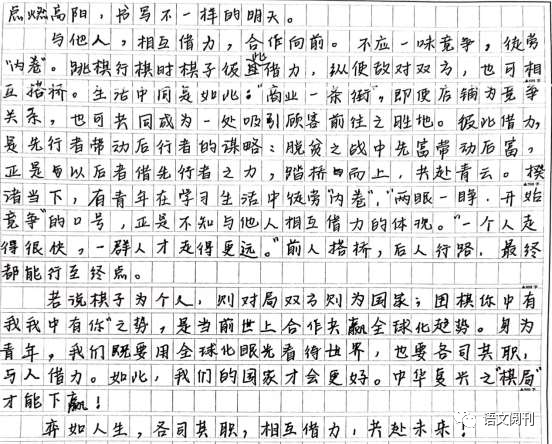 点燃高阳，书写不一样的明天。
与他人，相互借力，合作向前。不应一味竞争，徒劳
"内卷"。跳棋行棋时棋子彼此借力，纵使敌对双方，也可相
互搭桥。生活中同是如此："商业一条街"，即使店铺为竞争
关系，也可共同成为一处吸引顾客前往之胜地。彼此借力，
是先行者带动后行者的谋略：脱贫之战中先富带动后富，
正是与以后者借先行者之力，踏桥而上，书赴青云。揆
诸当下，有青年在学习生活中徒劳"内卷"，"两眼一睁，开始
竞争"的口号，正是不知与他人相互借力的体现。"一个人走
得很快，一群人才走得更远。"前人搭桥，后人行路，最终
都能行至终点。
若说棋子为个人，则对局双方则为国家；围棋你中有
我我中有你"之势，是当前世上合作共赢全球化趋势。身为
青年，我们既要用全球化眼光看待世界，也要各司其职，
与人借力。如此，我们的国家才会更好。中华复兴之"棋局"
才能下赢！
弈如人生，各司其职，相互借力，共赴未来！
语文阅刊